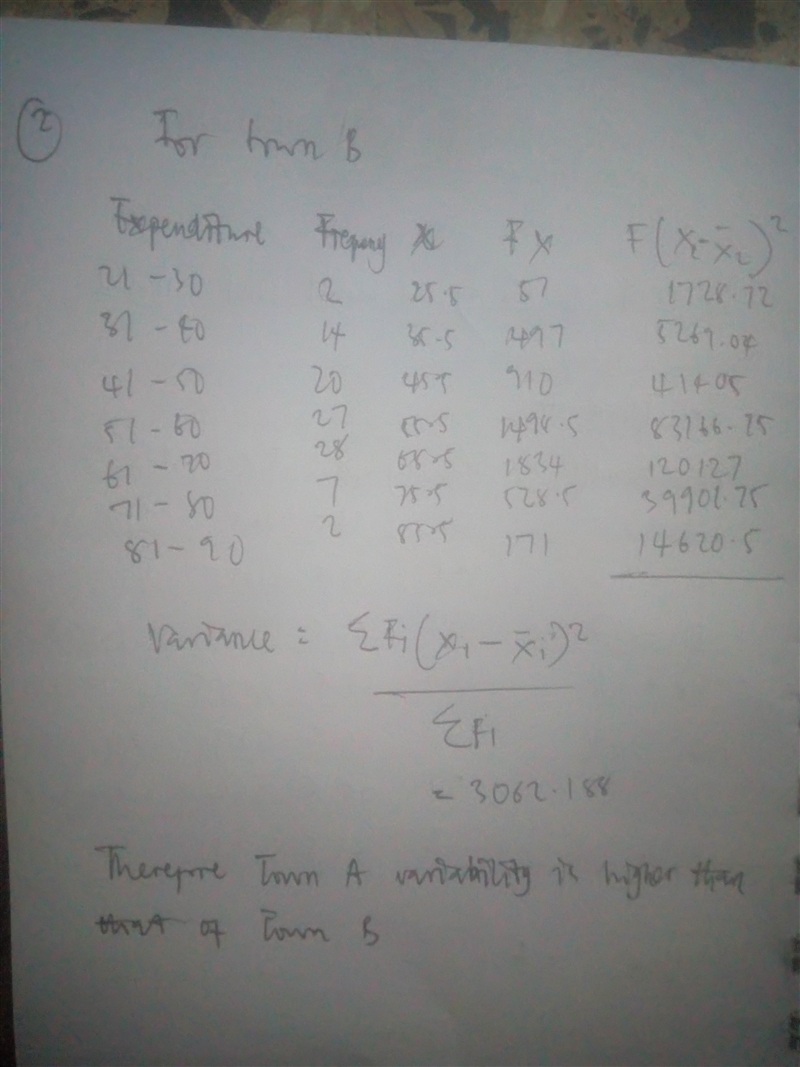 2 For town B
Expenditure Frequency X F X F(X₂-x̄₂)²
21-30 2 25.5 51 1728.72
31-40 14 35.5 497 5269.04
41-50 20 45.5 910 41405
51-60 27 55.5 1498.5 83166.75
61-70 28 65.5 1834 120127
71-80 7 75.5 528.5 39901.75
81-90 2 85.5 171 14620.5
Variance = ΣFi(x₁-x̄₁)²
ΣF₁
= 3062.188
Therefore Town A variability is higher than
that of Town B